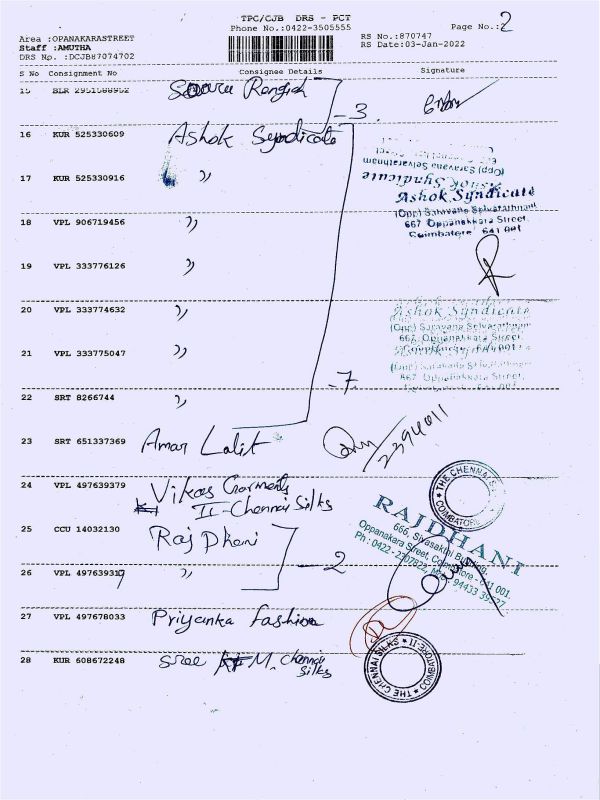 TPC/CJB DRS - PCT
Phone No.:0422-3505555
Page No.: 2
Area :OPANAKARASTREET
Staff :AMUTHA
DRS No. :DCJB87074702
RS No.:870747
RS Date:03-Jan-2022
S No Consignment No Consignee Details Signature
15 BLR 2951588952
- 3.
16 KUR 525330609 Ashok Syndicate
17 KUR 525330916 "
Ashok Syndicate
(Opp) Saravana Selvarathnam
667 Oppanakkara Street,
Coimbatore 641 001
18 VPL 906719456 "
19 VPL 333776126 "
20 VPL 333774632 "
Ashok Syndicate
(Opp) Saravana Selvarathnam
667, Oppanakkara Street,
21 VPL 333775047 "
667 Oppanakkara Street,
- 7.
22 SRT 8266744 "
23 SRT 651337369 Amar Lalit
2394011
24 VPL 497639379 Vikas Garments
II - Chennai Silks
THE CHENNAI
COIMBATORE
25 CCU 14032130
- 2
RAJDHANI
666, Sivasakthi Building,
Oppanakara Street, Coimbatore - 641 001
Ph : 0422 -
26 VPL 497639317 "
27 VPL 497678033 Priyanka fashion
28 KUR 608672248 Sree M. Chennai
Silks
THE CHENNAI SILKS * II-COIMBATORE *